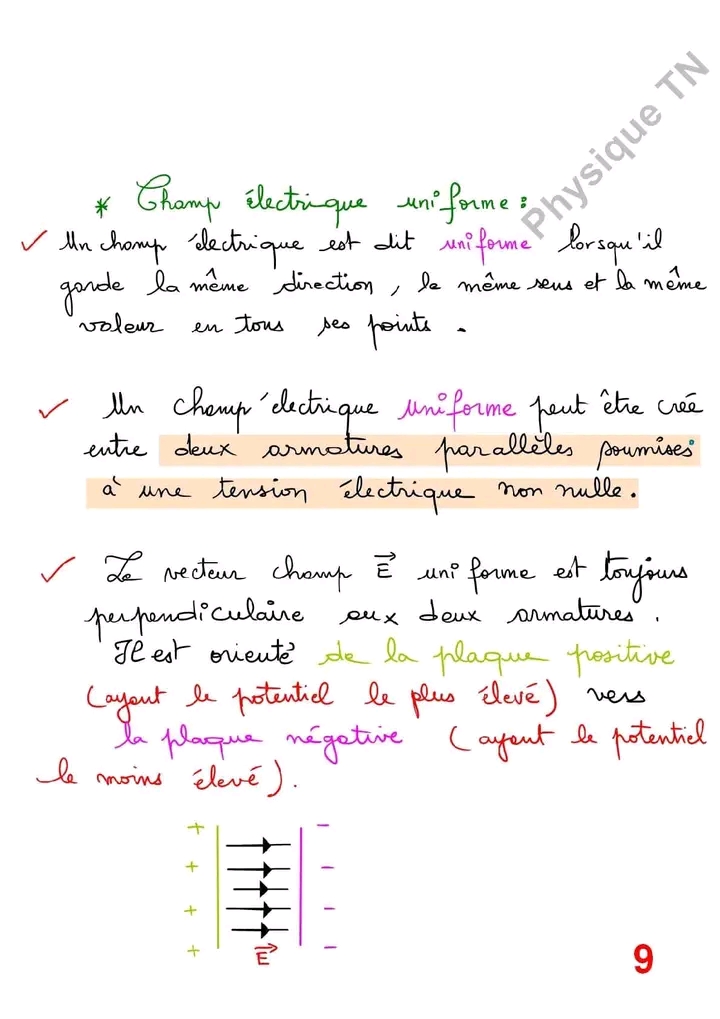 Physique TN
* Champ électrique uniforme :
✓ Un champ électrique est dit uniforme lorsqu'il
garde la même direction, le même sens et la même
valeur en tous ses points.
✓ Un champ électrique uniforme peut être créé
entre deux armatures parallèles soumises
à une tension électrique non nulle.
✓ Le vecteur champ E⃗ uniforme est toujours
perpendiculaire aux deux armatures.
Il est orienté de la plaque positive
(ayant le potentiel le plus élevé) vers
la plaque négative (ayant le potentiel
le moins élevé).
+ −
+ −
+ −
+ −
E⃗
9